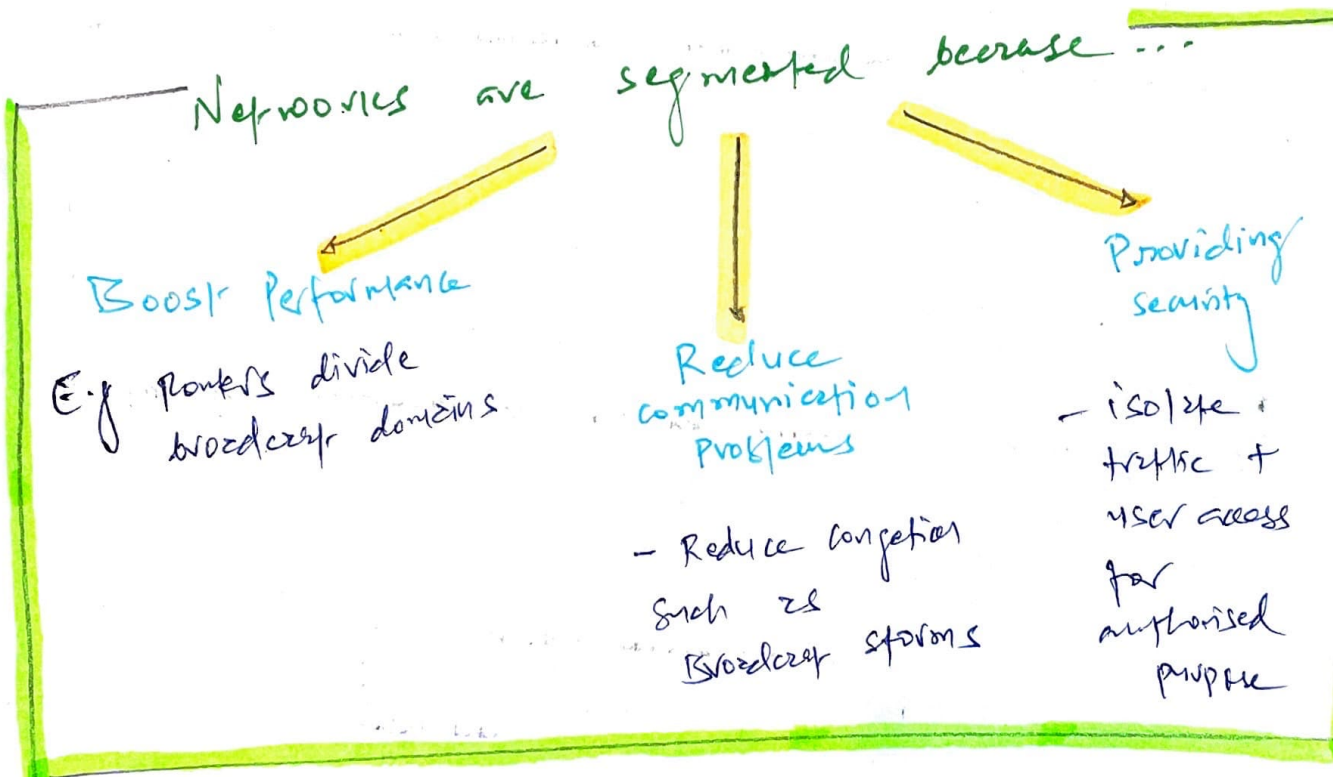 Networks are segmented because ...
Boost Performance
E.g Routers divide
broadcast domains
Reduce
communication
problems
- Reduce congetion
such as
Broadcast storms
Providing
security
- isolate
traffic +
user access
for
authorised
purpose